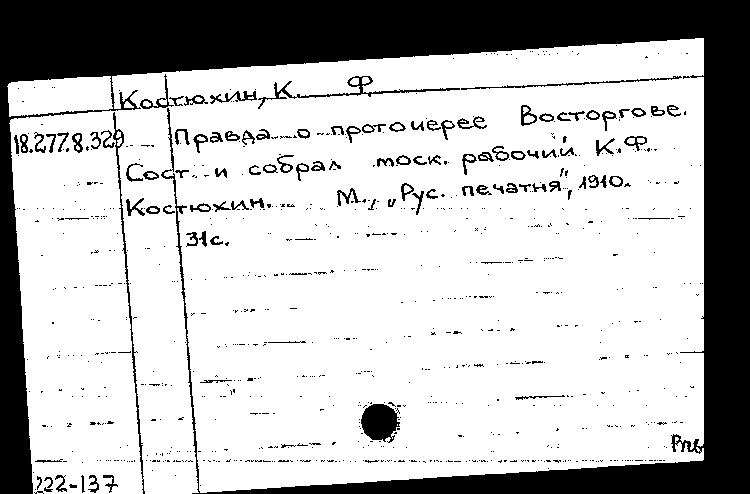 Костюхин, К. Ф.
18.277.8.329 Правда о протоиерее Восторгове.
Сост. и собрал моск. рабочий К.Ф.
Костюхин. М., „Рус. печатня", 1910.
31с.
222-137